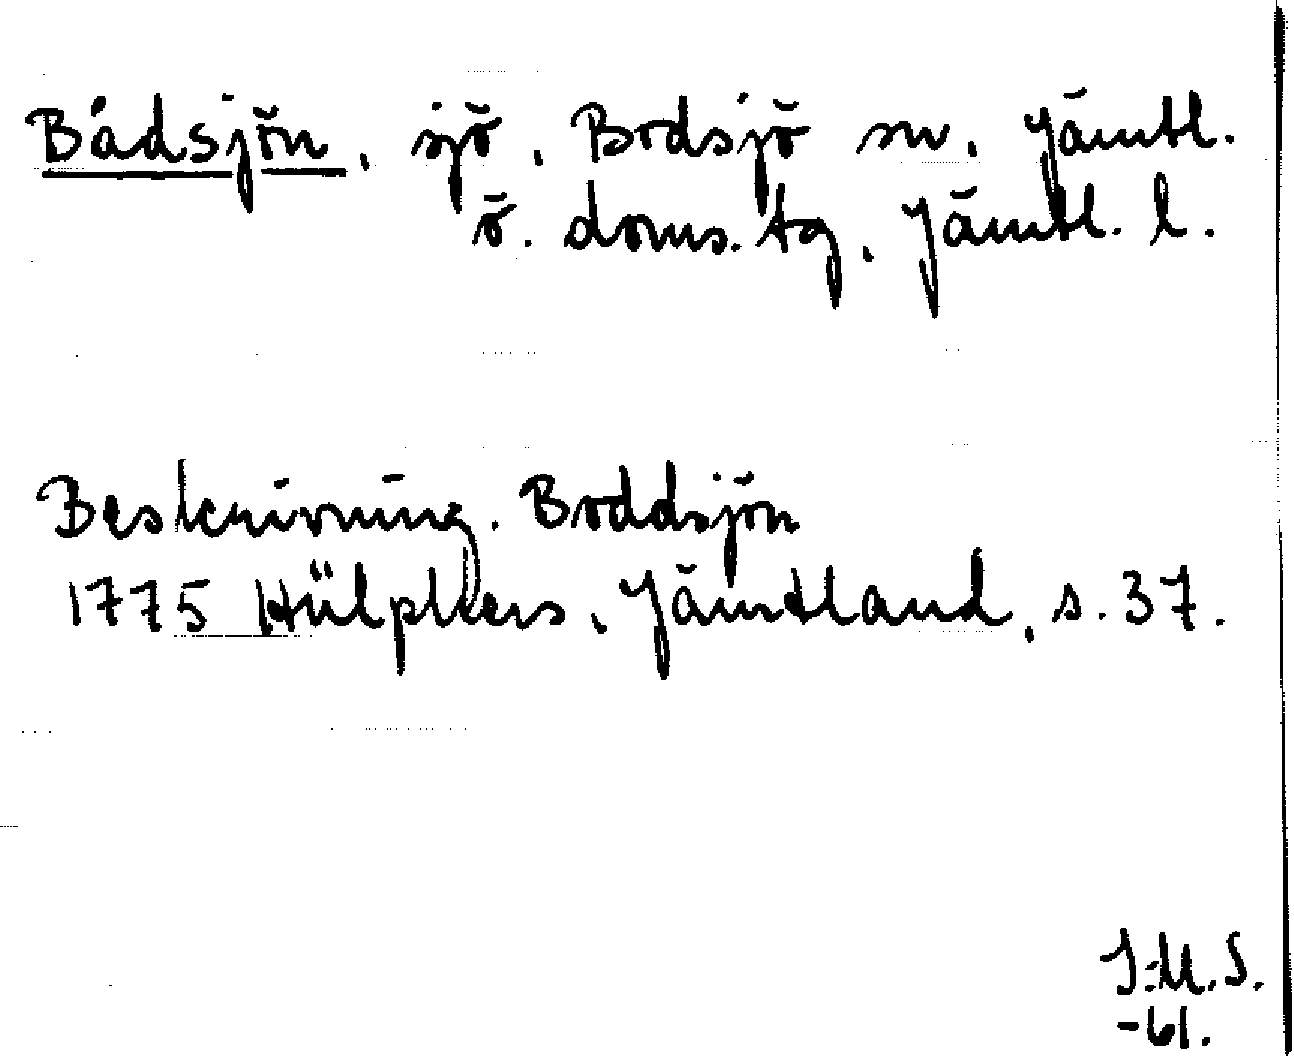 Bådsjön, sjö, Bodsjö sn, Jämtl.
ö. doms. tg, Jämtl. l.
Beskrivning. Boddsjön
1775 Hülphers, Jämtland, s. 37.
I-M.S.
-61.